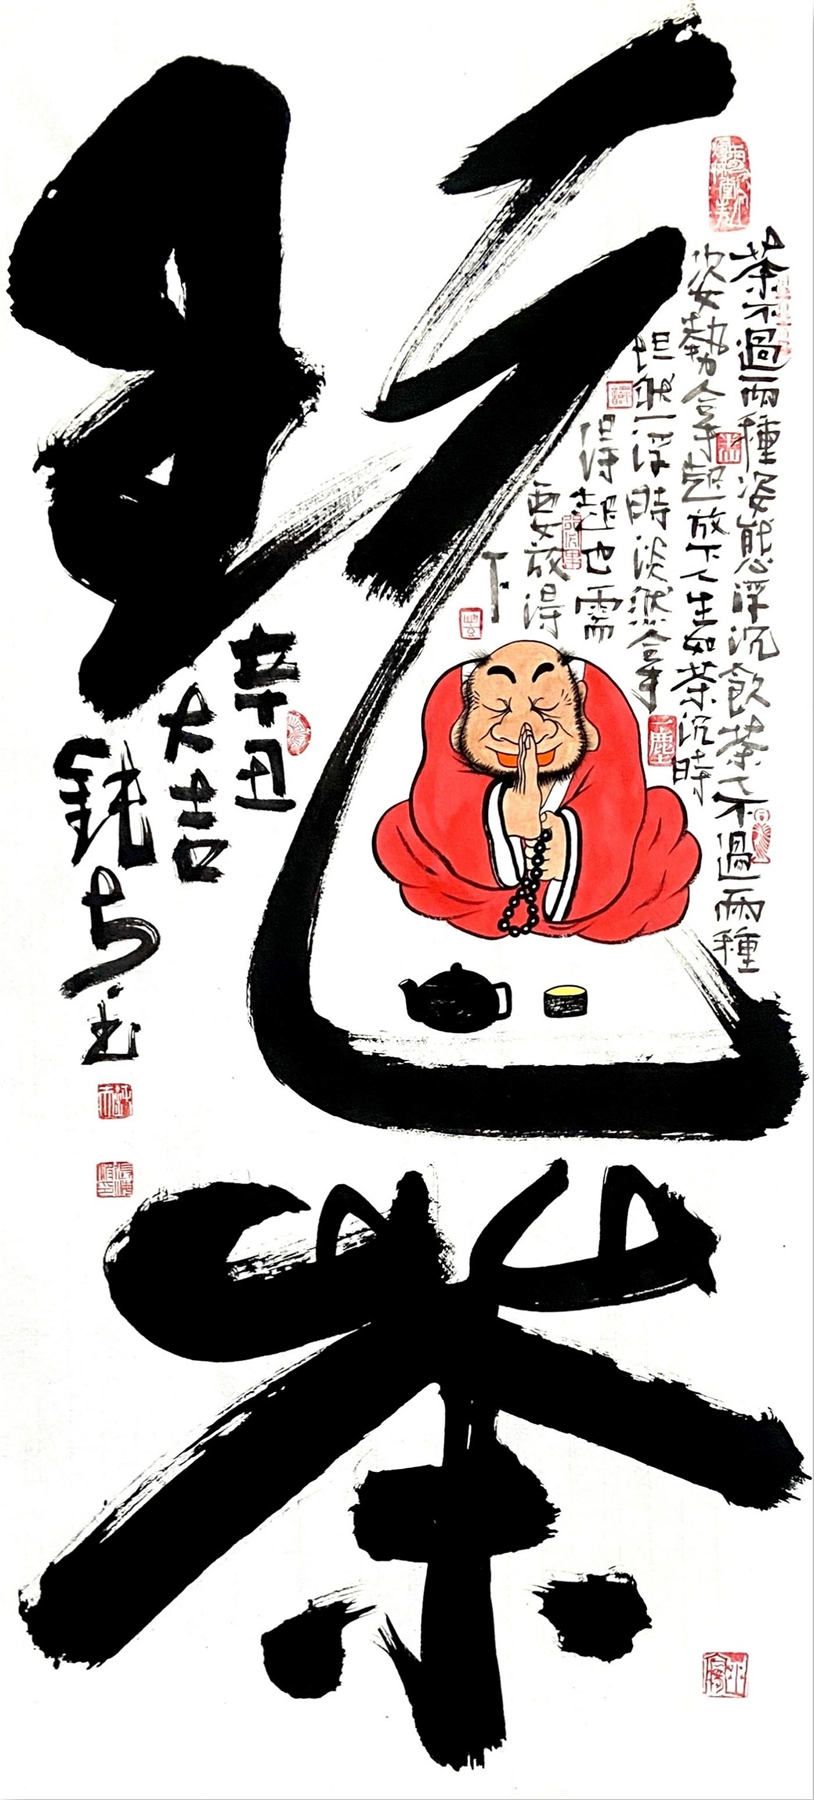 玩茶
茶不過兩種姿態浮沉飲茶人不過兩種
姿勢拿起放下人生如茶沉時
坦然浮時淡然拿
得起也需
要放得
下
辛丑
大吉